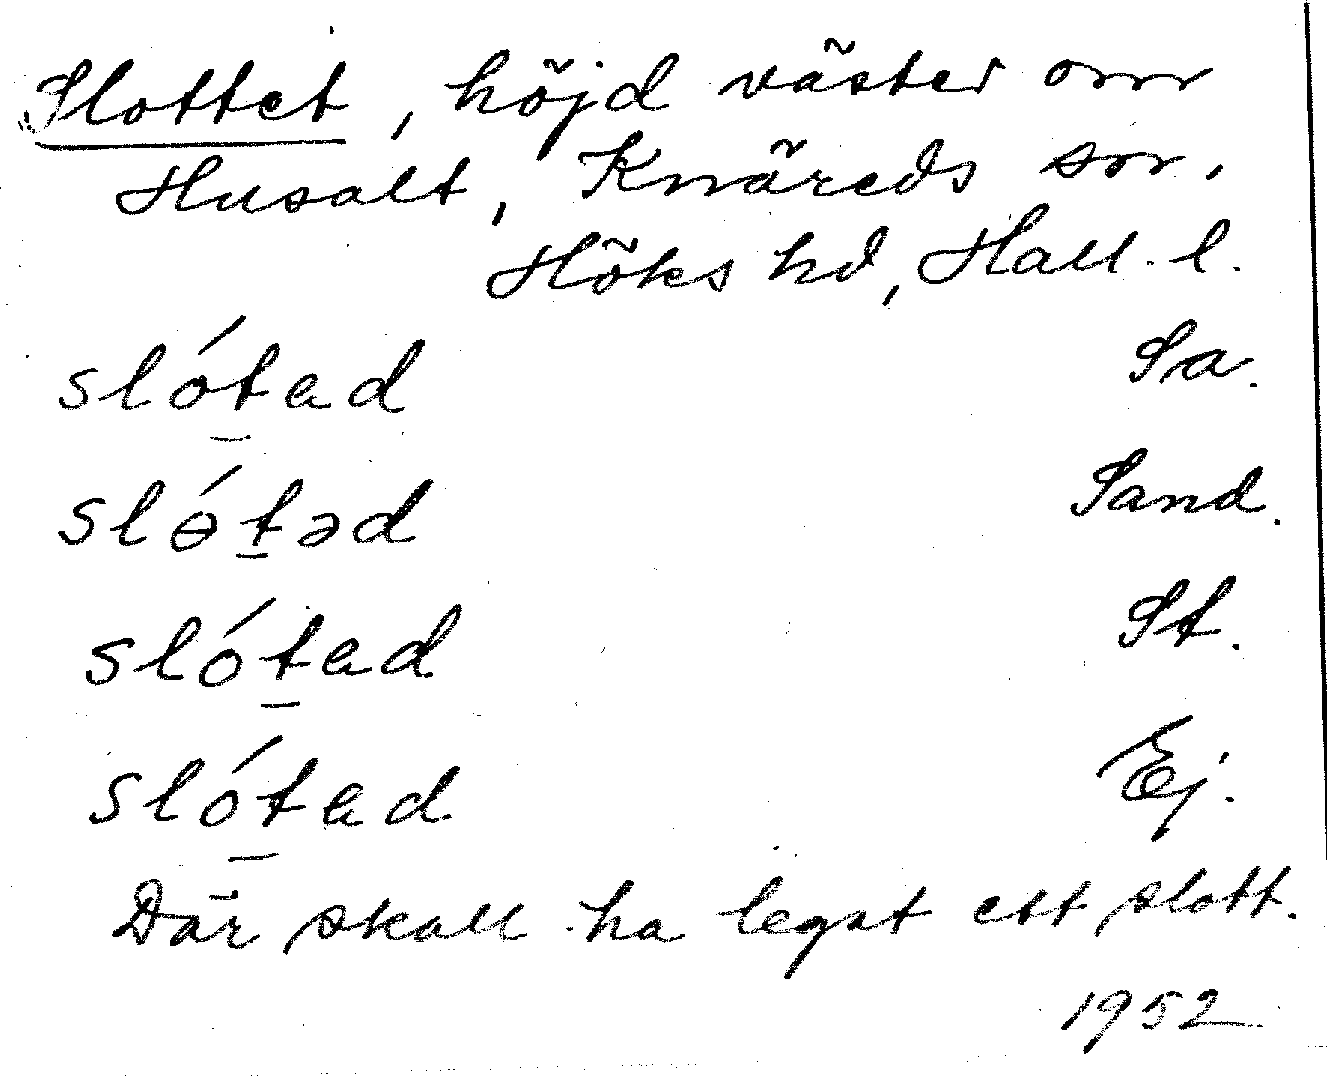 Slottet, höjd väster om
Husalt, Knäreds sn,
Höks hd, Hall. l.
slótad Sa.
slɵ́təd Sand.
slótad St.
slótad Ej.
Där skall ha legat ett slott.
1952